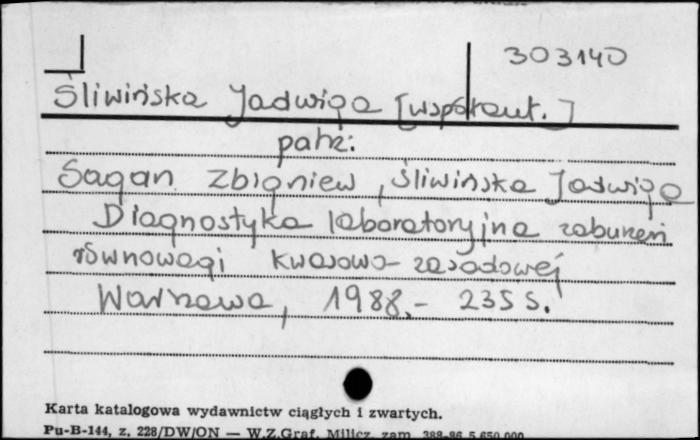 303140
Śliwińska Jadwiga [współaut.]
patrz:
Sagan Zbigniew, Śliwińska Jadwiga
Diagnostyka laboratoryjna zaburzeń
równowagi kwasowo-zasadowej
Warszawa, 1988.- 235 s.
Karta katalogowa wydawnictw ciągłych i zwartych.
Pu-B-144, z. 228/DW/ON — W.Z.Graf. Milicz, zam. 388-86 5.650.000